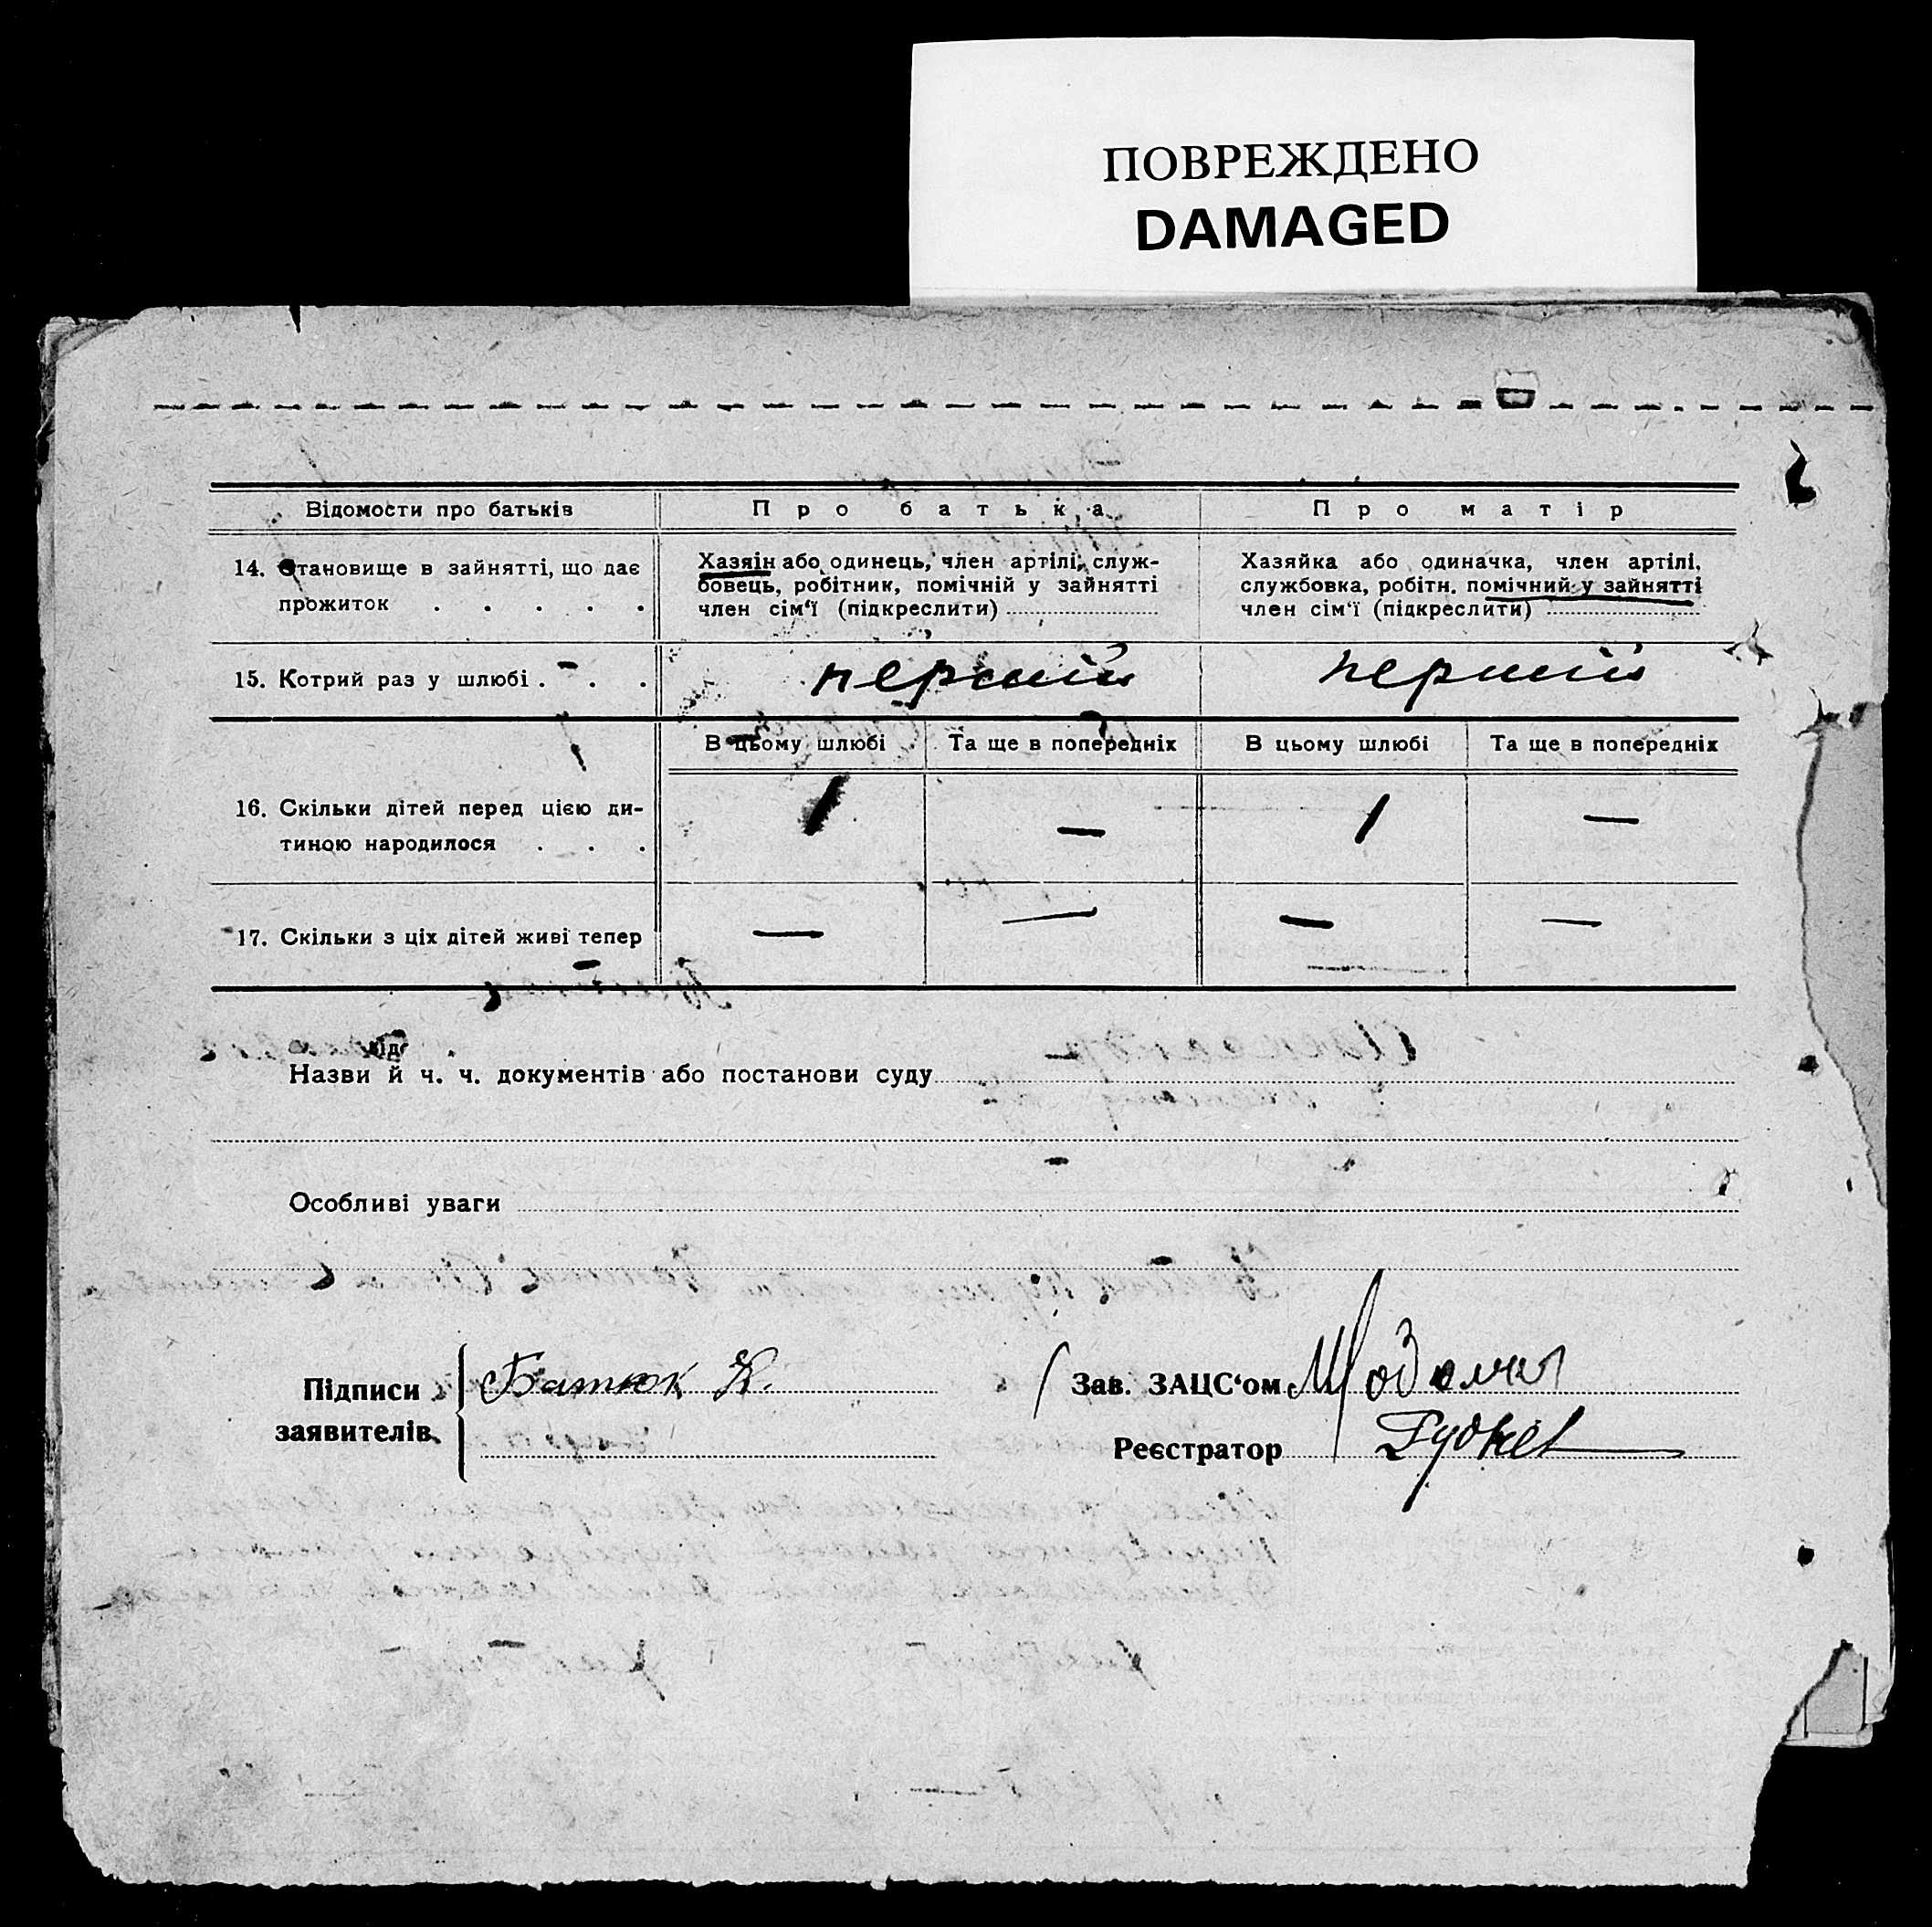 ПОВРЕЖДЕНО
DAMAGED
Відомости про батьків
Про батька
Про матір
14. Становище в зайнятті, що дає
прожиток . . . . .
Хазяін або одинець, член артілі, служ-
бовець, робітник, помічній у зайнятті
член сім'ї (підкреслити)
Хазяйка або одиначка, член артілі,
службовка, робітн. помічний у зайнятті
член сім'ї (підкреслити)
15. Котрий раз у шлюбі . . .
перший
перший
В цьому шлюбі
Та ще в попередніх
В цьому шлюбі
Та ще в попередніх
16. Скільки дітей перед цією ди-
тиною народилося . . .
1
—
1
—
17. Скільки з ціх дітей живі тепер
—
—
—
—
Назви й ч. ч. документів або постанови суду
Особливі уваги
Підписи
заявителів.
Батюк К.
Зав. ЗАЦС'ом
Реєстратор